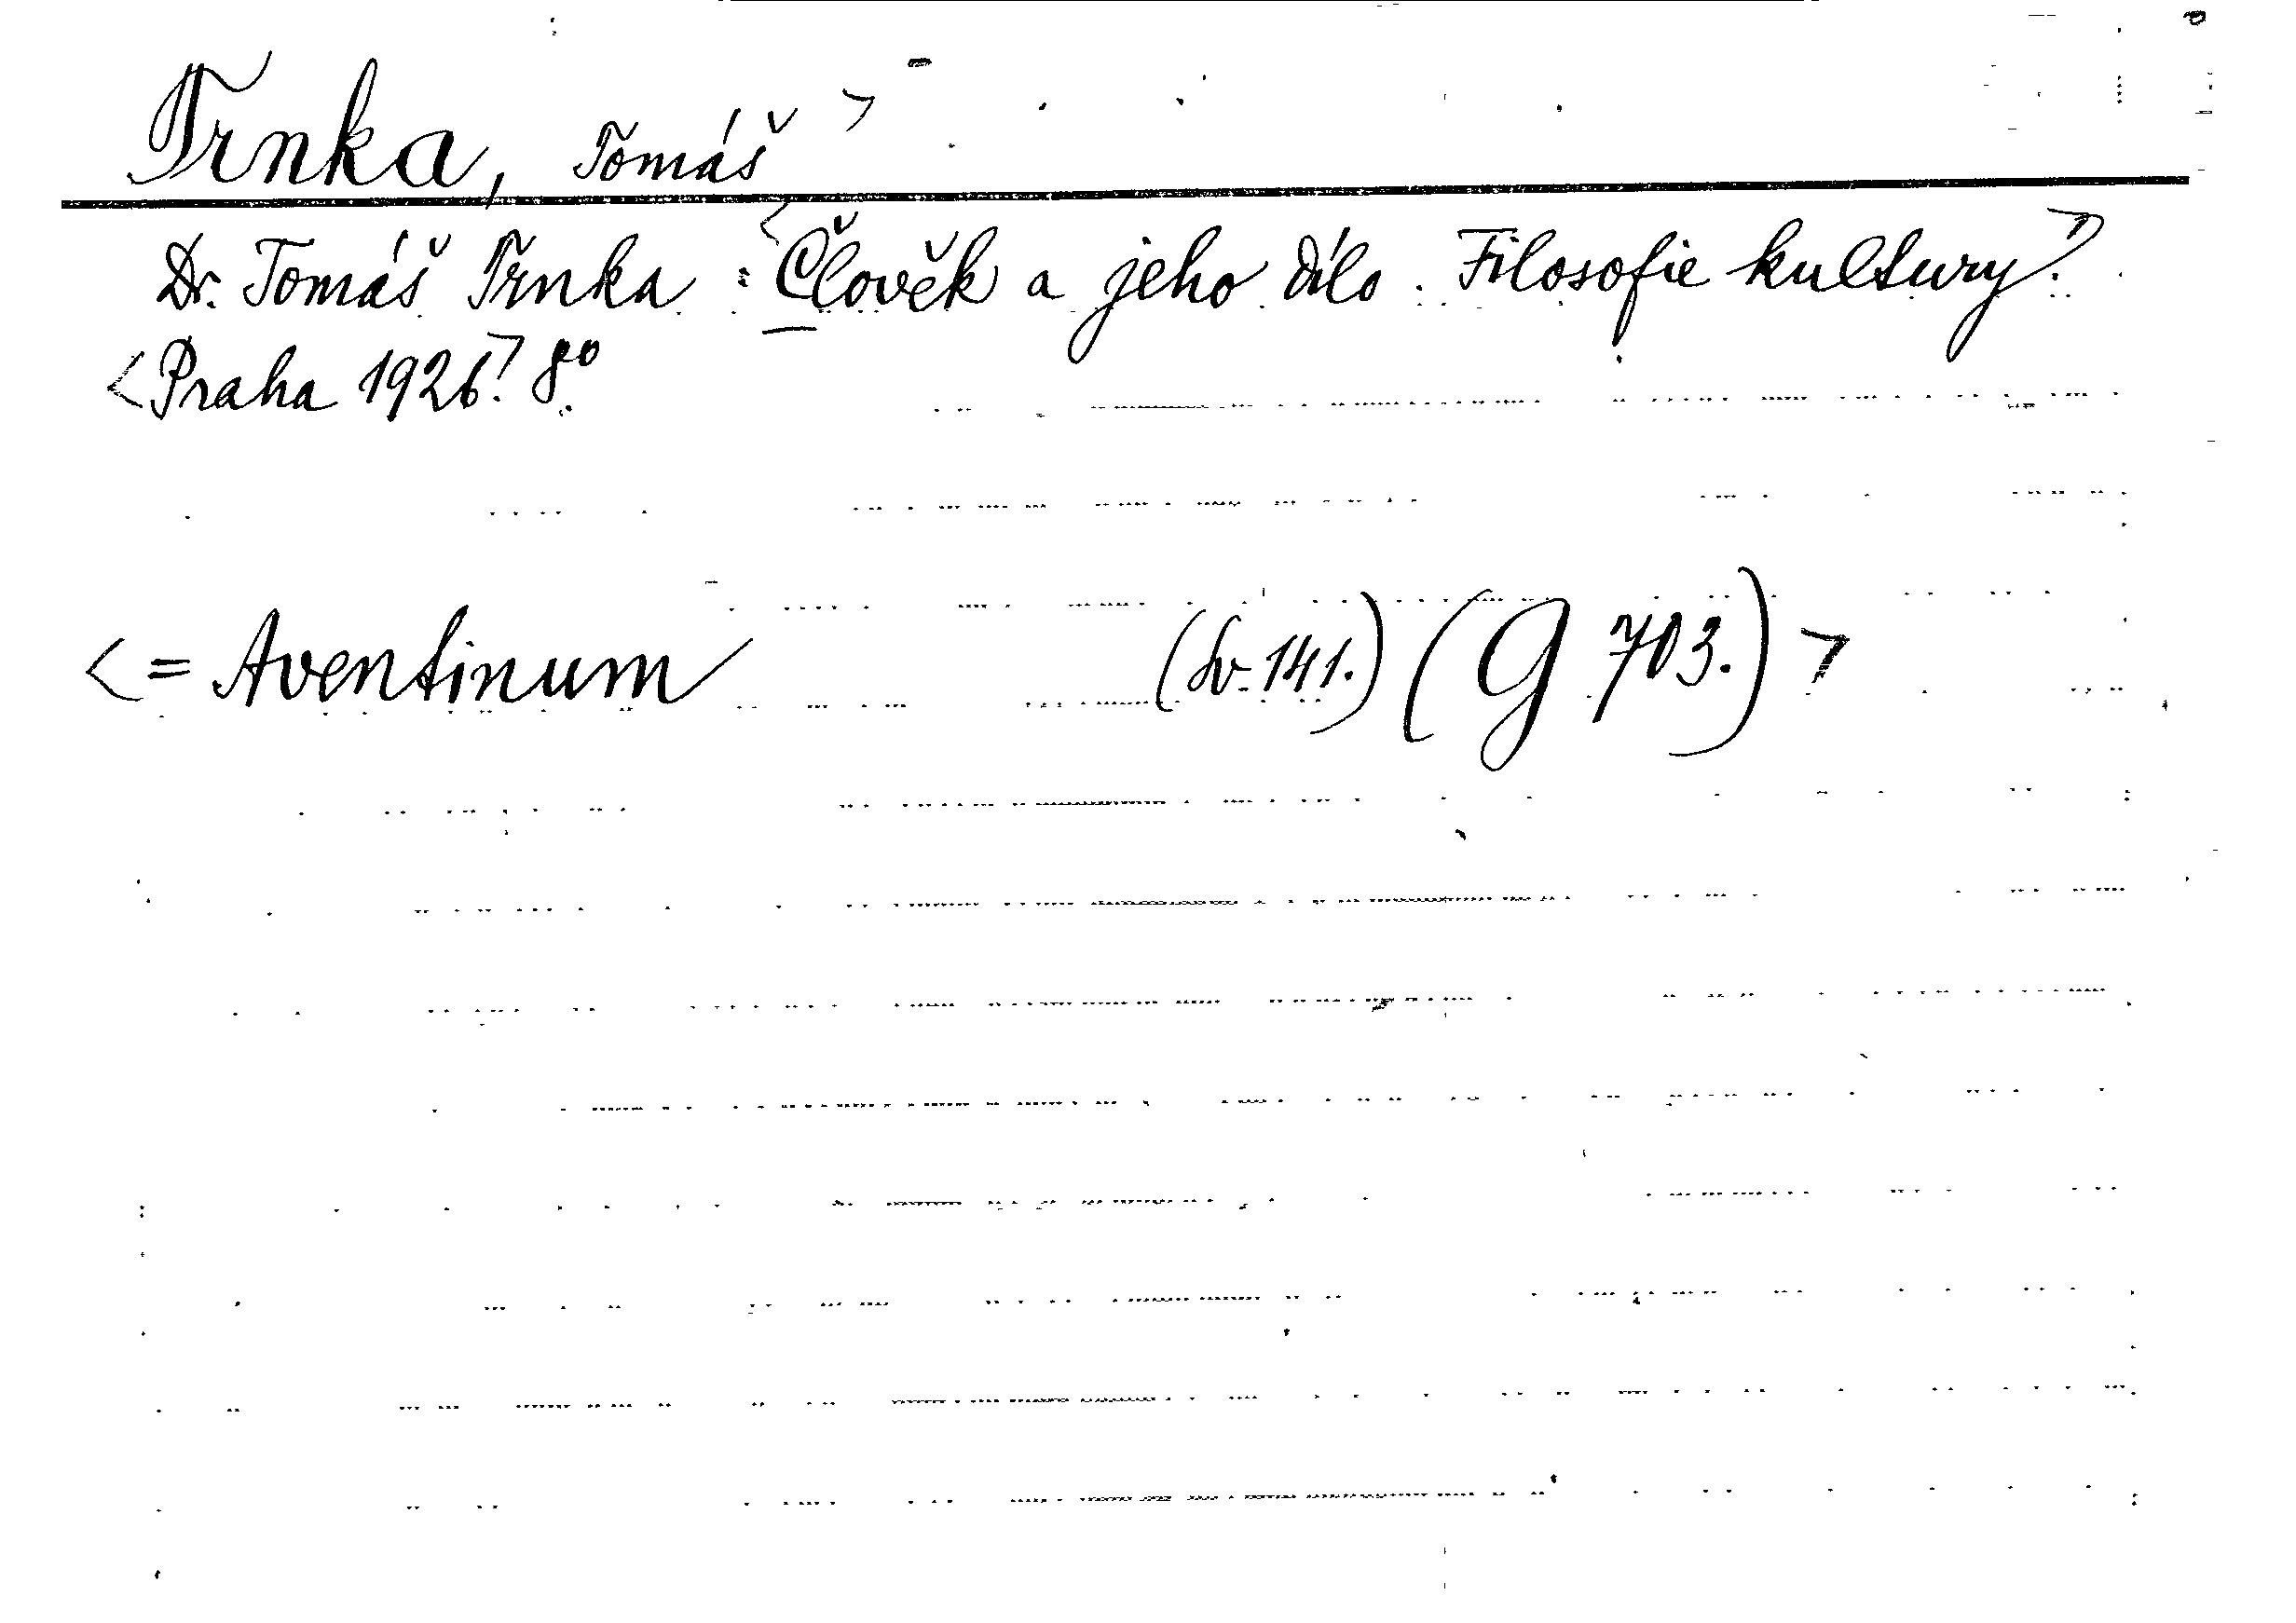 Trnka, Tomáš >
Dr. Tomáš Trnka : <Člověk a jeho dílo. Filosofie kultury.>
<Praha 1926.> 8°.
<= Aventinum (Sv. 141.) (G 703.) >